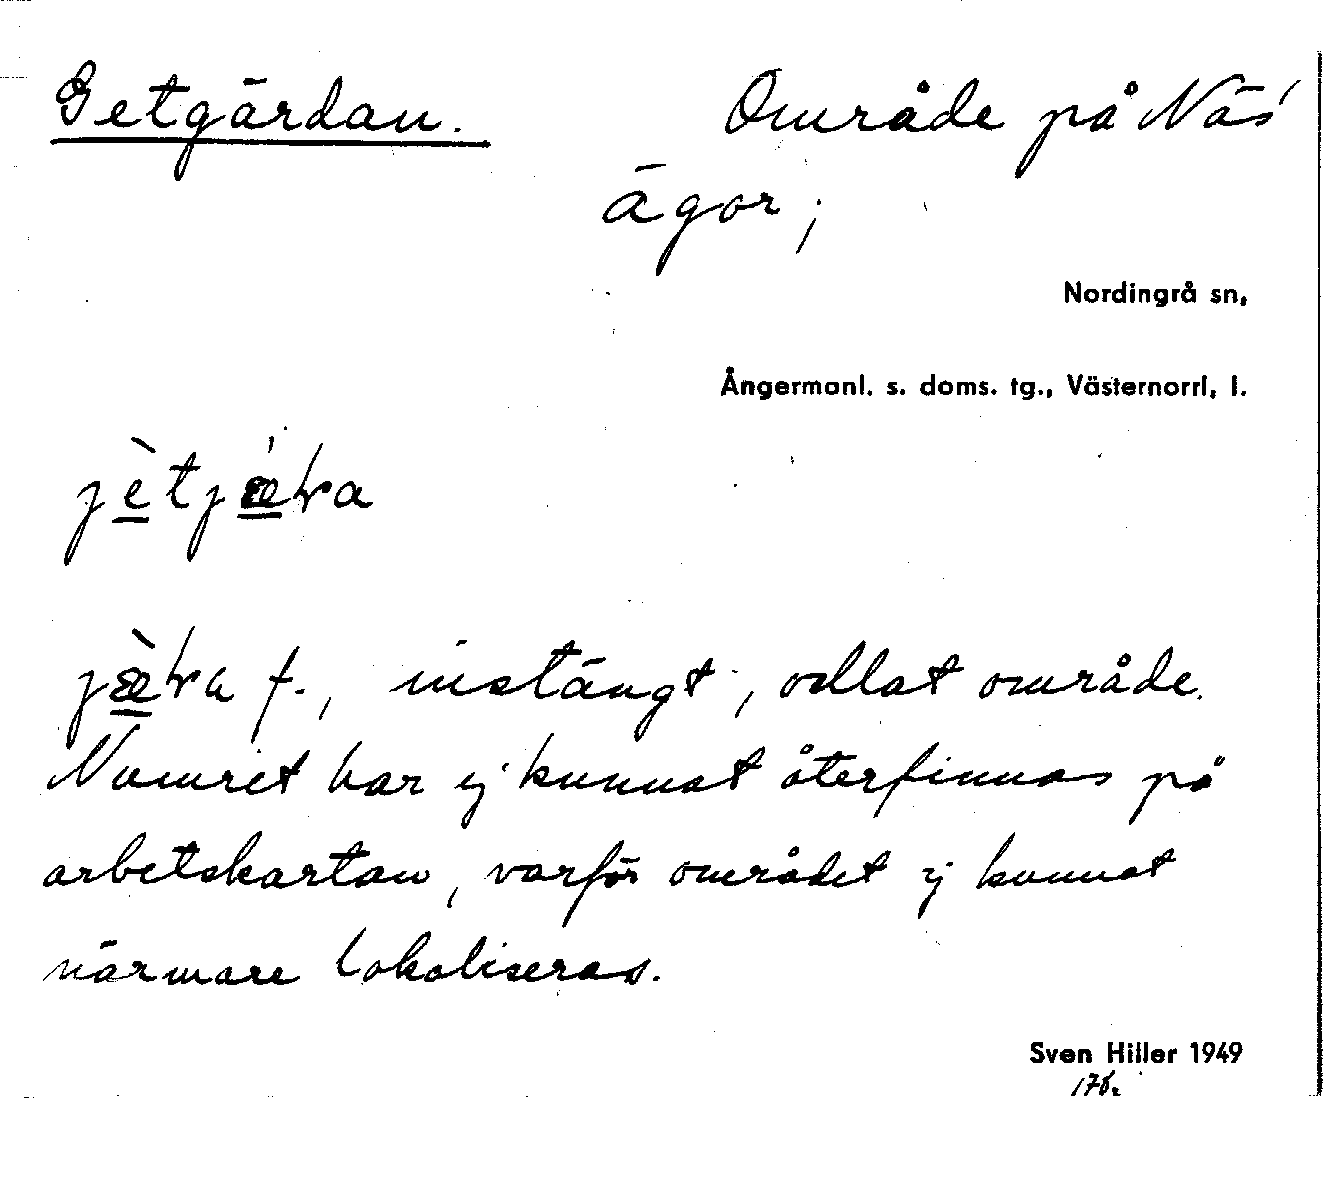 Getgärdan. Område på Näs'
ägor;
Nordingrå sn,
Ångermanl. s. doms. tg., Västernorrl, l.
f., instängt, vallat område.
Numret har ej kunnat återfinnas på
arbetskartan, varför området ej kunnat
närmare lokaliseras.
Sven Hiller 1949